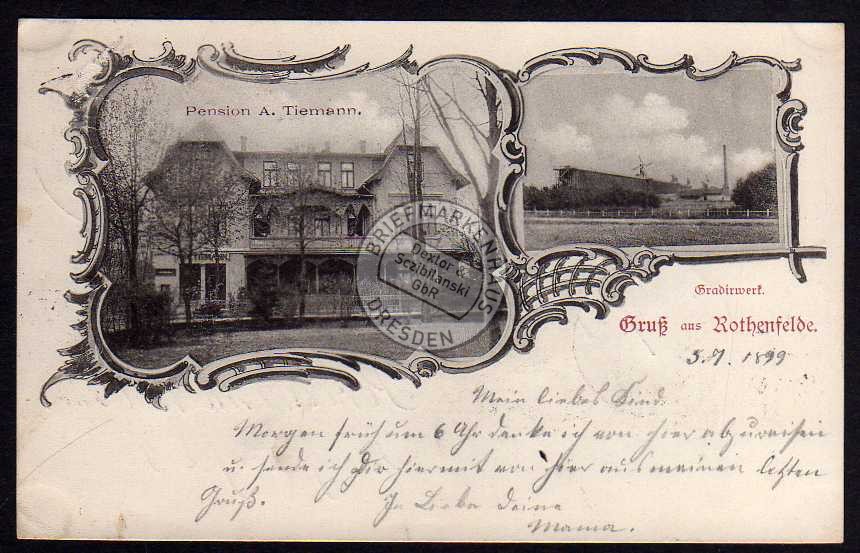 Pension A. Tiemann.
BRIEFMARKENHAUS
Dextor &
Sczibilanski
GbR
DRESDEN
Gradirwerk.
Gruß aus Rothenfelde.
5.7. 1899
Mein liebes Kind.
Morgen früh um 6 Uhr denke ich von hier abzureisen
u. sende ich Dir hiermit von hier aus meinen letzten
Gruß. In Liebe Deine
Mama.